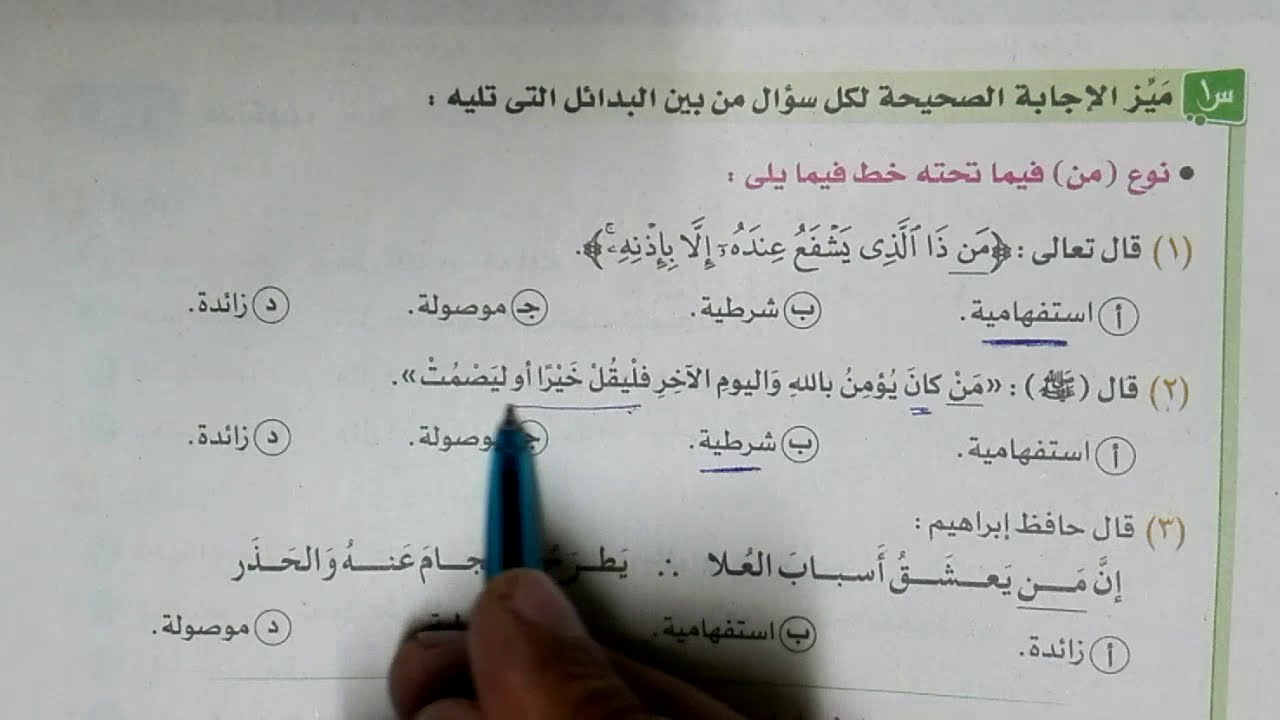 س١ مَيِّز الإجابة الصحيحة لكل سؤال من بين البدائل التى تليه :
• نوع (من) فيما تحته خط فيما يلى :
(١) قال تعالى : ﴿مَن ذَا ٱلَّذِى يَشْفَعُ عِندَهُۥٓ إِلَّا بِإِذْنِهِۦ﴾.
أ استفهامية. ب شرطية. جـ موصولة. د زائدة.
(٢) قال (ﷺ) : «مَنْ كانَ يُؤمِنُ باللهِ وَاليومِ الآخِرِ فلْيقُلْ خَيْرًا أو ليَصْمُتْ».
أ استفهامية. ب شرطية. جـ موصولة. د زائدة.
(٣) قال حافظ إبراهيم :
إنَّ مَـن يَعـشَـقُ أَسـبـابَ العُـلا ∴ يَطـرَحُ عَنـهُ وَالحَـذَر
أ زائدة. ب استفهامية. د موصولة.